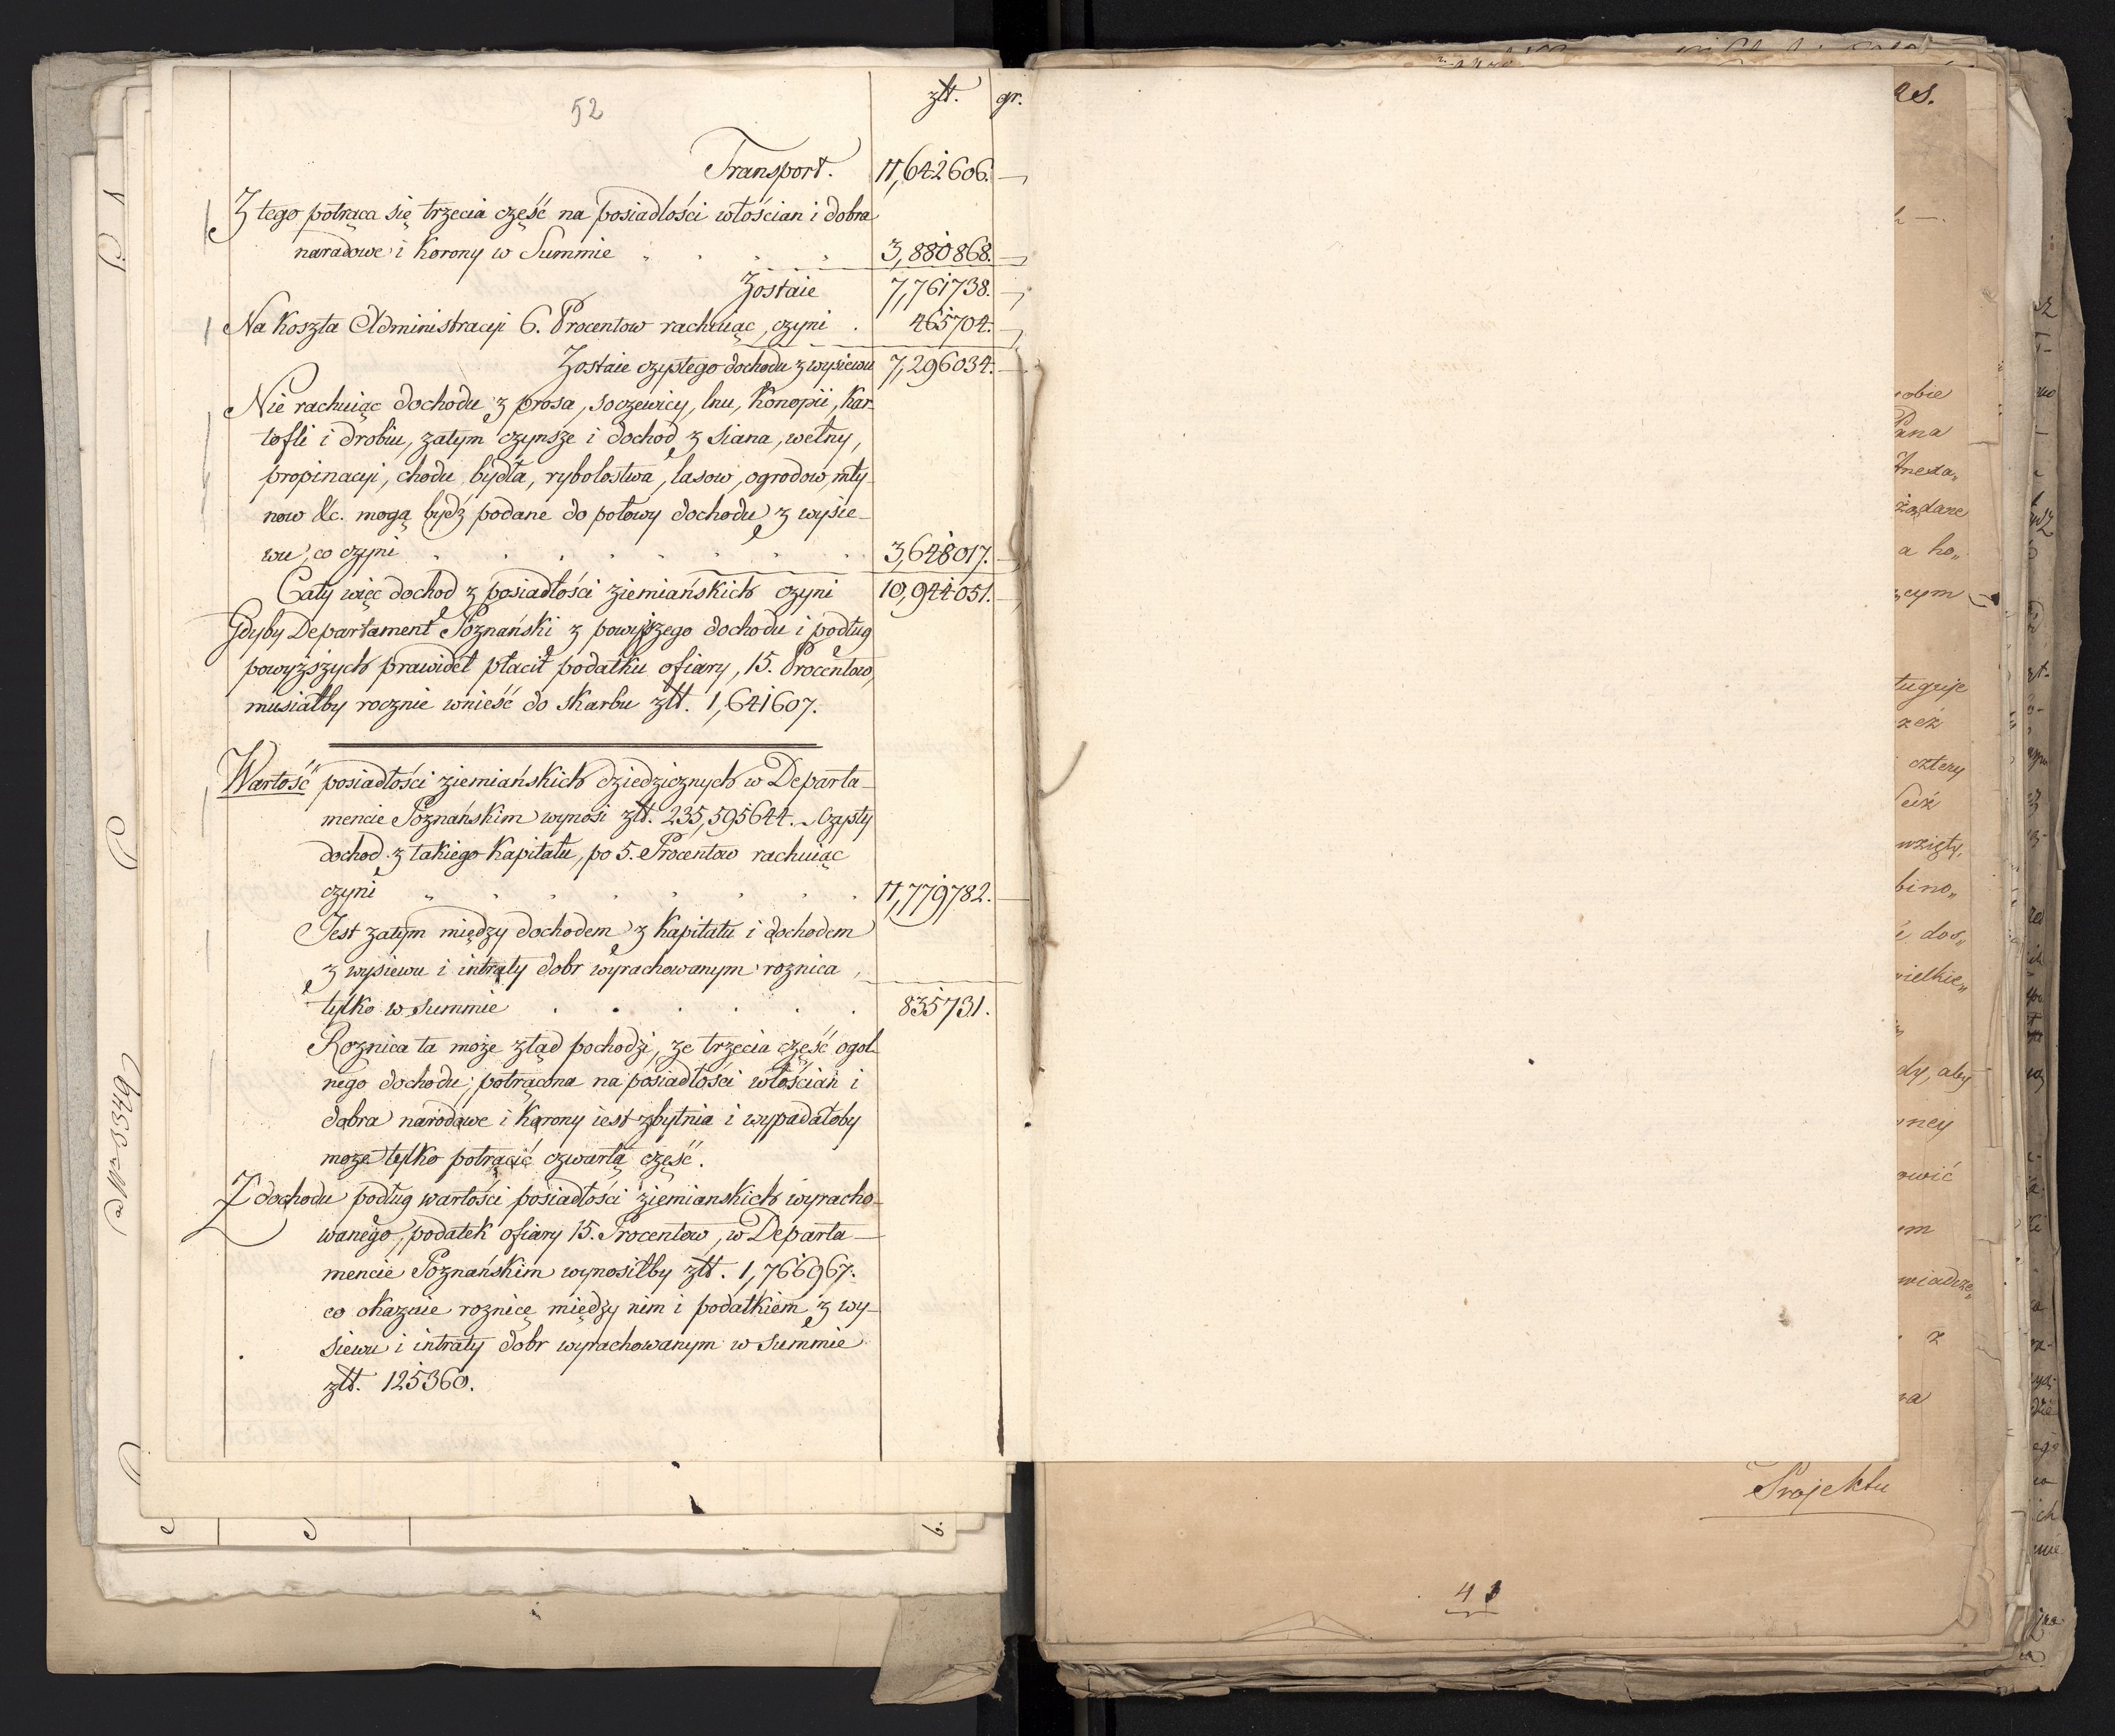 52
złt. gr.
Transport. 11,642606. —
Z tego potrąca się trzecia część na posiadłości włościan i dobra
naradowe i Korony w Summie 3,880868. —
Zostaie 7,761738. —
Na Koszta Administracyi 6. Procentow rachuiąc, czyni . 465704. —
Zostaie czystego dochodu z wysiewu 7,296034. —
Nie rachuiąc dochodu z prosa, soczewicy, lnu, Konopii, Kar-
tofli i drobiu, zatym czynsze i dochod z siana, wełny,
propinacyi, chodu bydła, rybolostwa, lasow, ogrodow, mły-
now &c. mogą bydź podane do połowy dochodu z wysie-
wu, co czyni 3,648017. —
Cały więc dochod z posiadłości ziemiańskich czyni 10,944051. —
Gdyby Departament Poznański z powyższego dochodu i podług
powyższych prawideł płacił podatku ofiary, 15. Procentow,
musiałby rocznie wnieść do Skarbu złt. 1,641607.
Wartość posiadłości ziemiańskich dziedzicznych w Departa-
mencie Poznańskim wynosi złt. 235,595644. Czysty
dochod z takiego Kapitału, po 5. Procentow rachuiąc
czyni 11,779782. —
Jest zatym między dochodem z Kapitału i dochodem
z wysiewu i intraty dobr wyrachowanym roznica,
tylko w summie 835731.
Roznica ta może ztąd pochodzi, ze trzecia część ogol-
nego dochodu, potrącona na posiadłości włościan i
dobra narodowe i Korony iest zbytnia i wypadałoby
może tylko potrącić czwartą część.
Z dochodu podług wartości posiadłości ziemianskich wyracho-
wanego, podatek ofiary 15. Procentow, w Departa-
mencie Poznańskim wynosiłby złt. 1,766967.
co okazuie roznicę między nim i podatkiem z wy-
siewu i intraty dobr wyrachowanym w summie
złt. 125360.
robie
Pana
żądane
a ho„
cztery
wzięty,
bino„
i dos„
wielkie„
dy, aby
z
Projektu
41